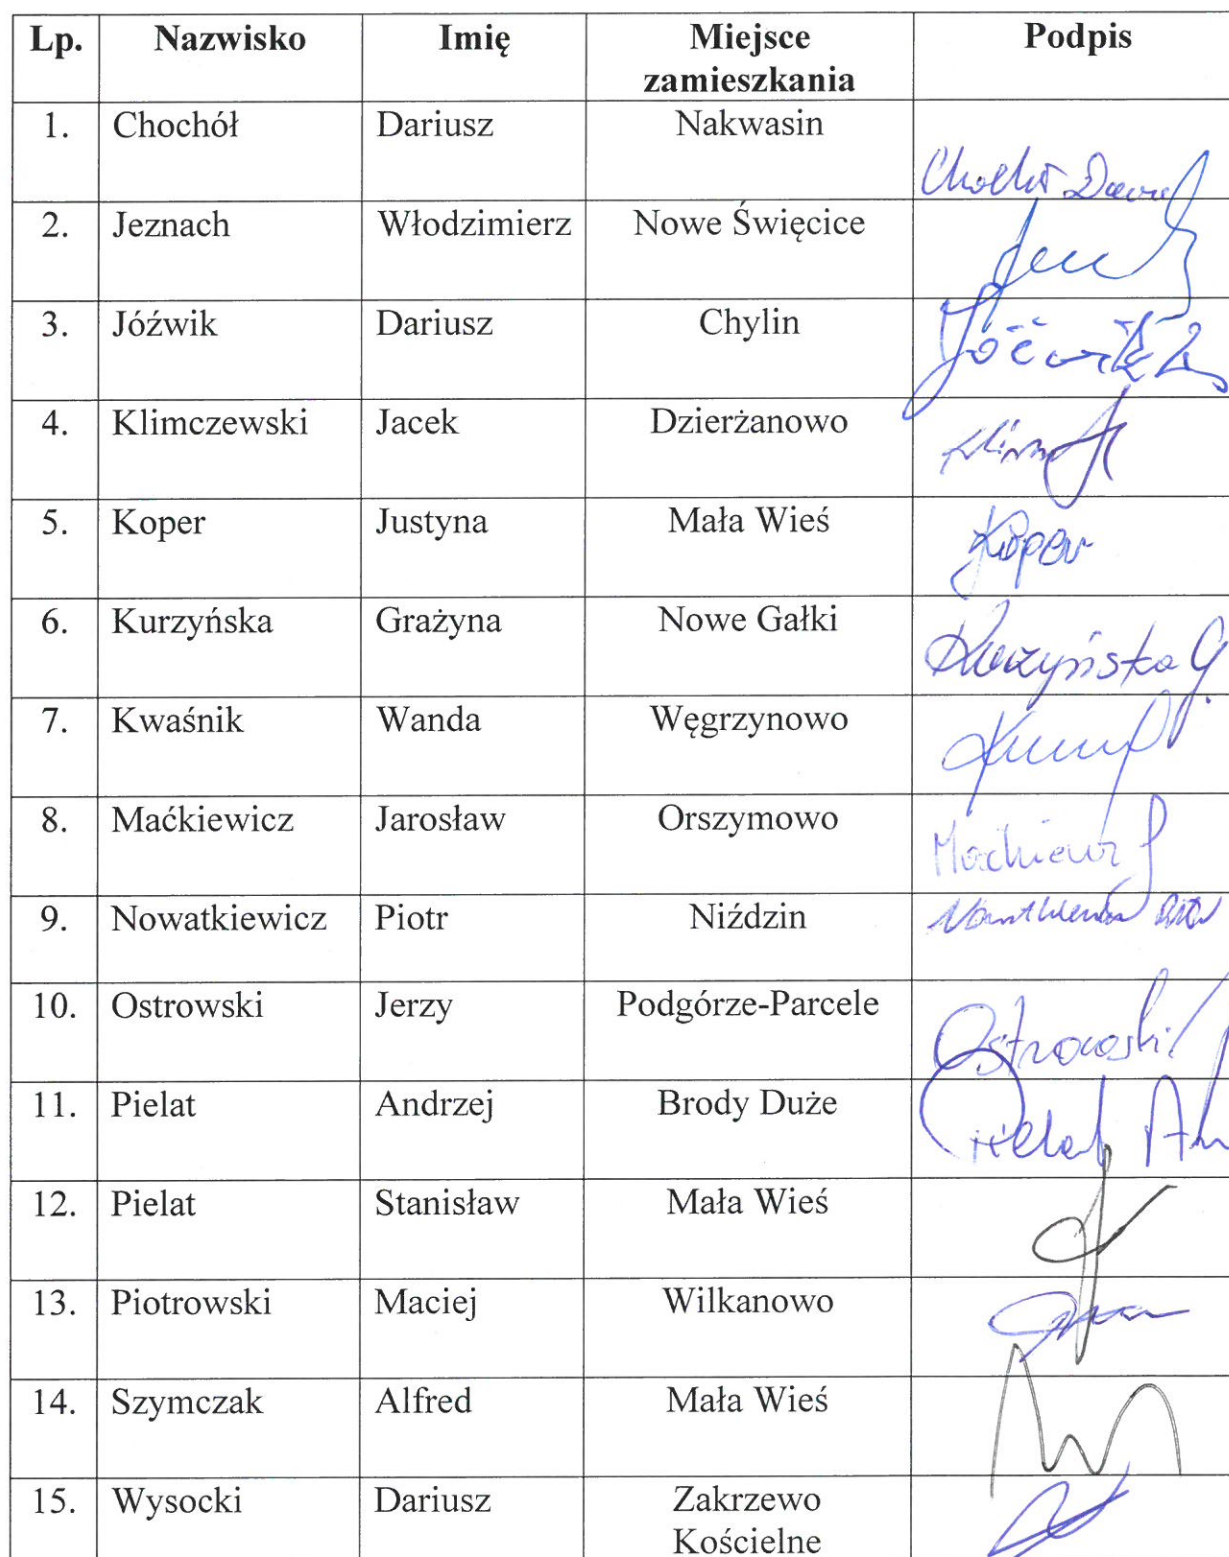 Lp. Nazwisko Imię Miejsce zamieszkania Podpis
1. Chochół Dariusz Nakwasin
2. Jeznach Włodzimierz Nowe Święcice
3. Jóźwik Dariusz Chylin
4. Klimczewski Jacek Dzierżanowo
5. Koper Justyna Mała Wieś Koper
6. Kurzyńska Grażyna Nowe Gałki Kurzyńska G.
7. Kwaśnik Wanda Węgrzynowo
8. Maćkiewicz Jarosław Orszymowo
9. Nowatkiewicz Piotr Niździn
10. Ostrowski Jerzy Podgórze-Parcele Ostrowski
11. Pielat Andrzej Brody Duże Pielat An
12. Pielat Stanisław Mała Wieś
13. Piotrowski Maciej Wilkanowo
14. Szymczak Alfred Mała Wieś
15. Wysocki Dariusz Zakrzewo Kościelne